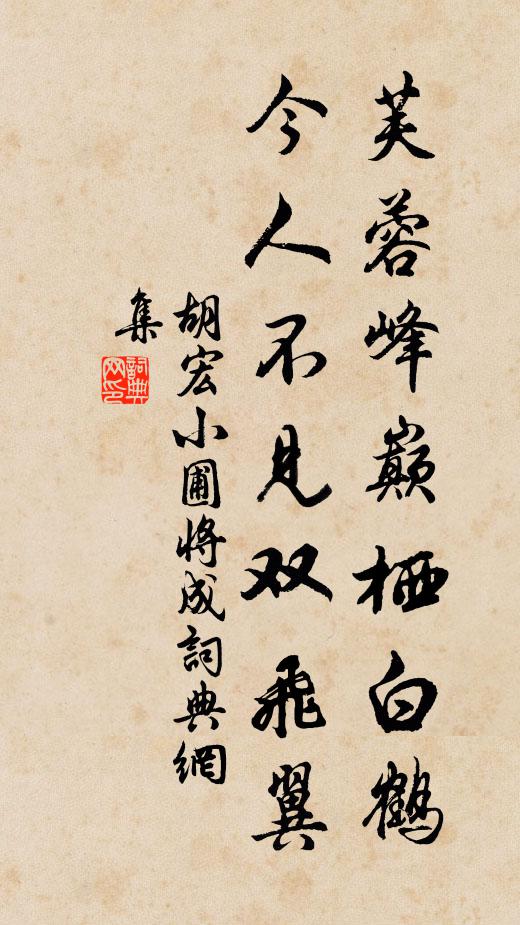 芙蓉峰巅栖白鹤
今人不见双飛翼
胡宏小圃将成詞典網
集
詞典
网印